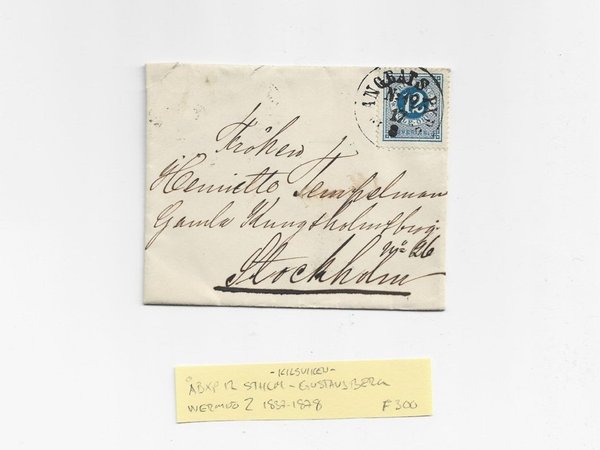 ÅNGBÅTS PXP
No 12
17
8
12
Fröken
Henriette Tempelman
Gamla Kungsholmsbrog.
No 26
Stockholm
-KILSVIKEN-
ÅBXP 12 STHLM - GUSTAVSBERG
WERMDÖ 2 1837-1878 F 300